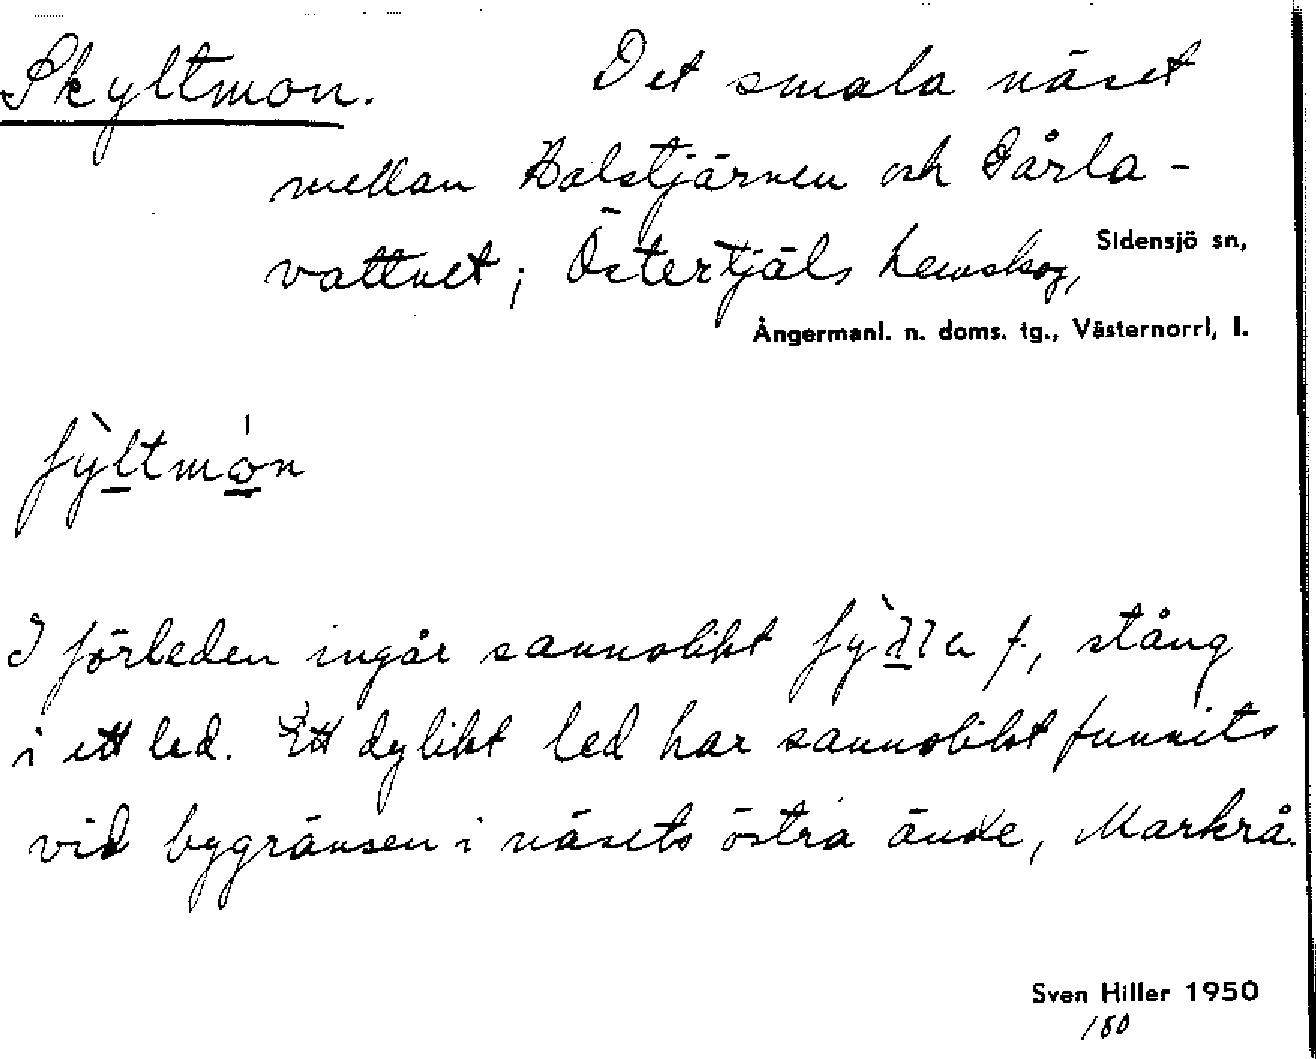 Skyltmon. Det smala näset
mellan Holstjärnen och Gårla-
vattnet; Östertjäls hemskog, Sidensjö sn,
Ångermanl. n. doms. tg., Västernorrl. l.
ʃỳltmón
I förleden ingår sannolikt f., stång
i ett led. Ett dylikt led har sannolikt funnits
vid bygränsen i näsets östra ände, Markrå.
Sven Hiller 1950
/80